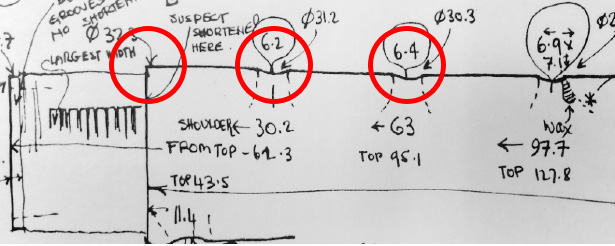 GROOVES
NO SHORTEN
Ø 32.3
LARGEST WIDTH
SUSPECT
SHORTENED
HERE.
6.2
Ø31.2
6.4
Ø30.3
6.9
7.1
SHOULDER ← 30.2
← 63
WAX
← 97.7
FROM TOP - 62.3
TOP 95.1
TOP 127.8
TOP 43.5
11.4